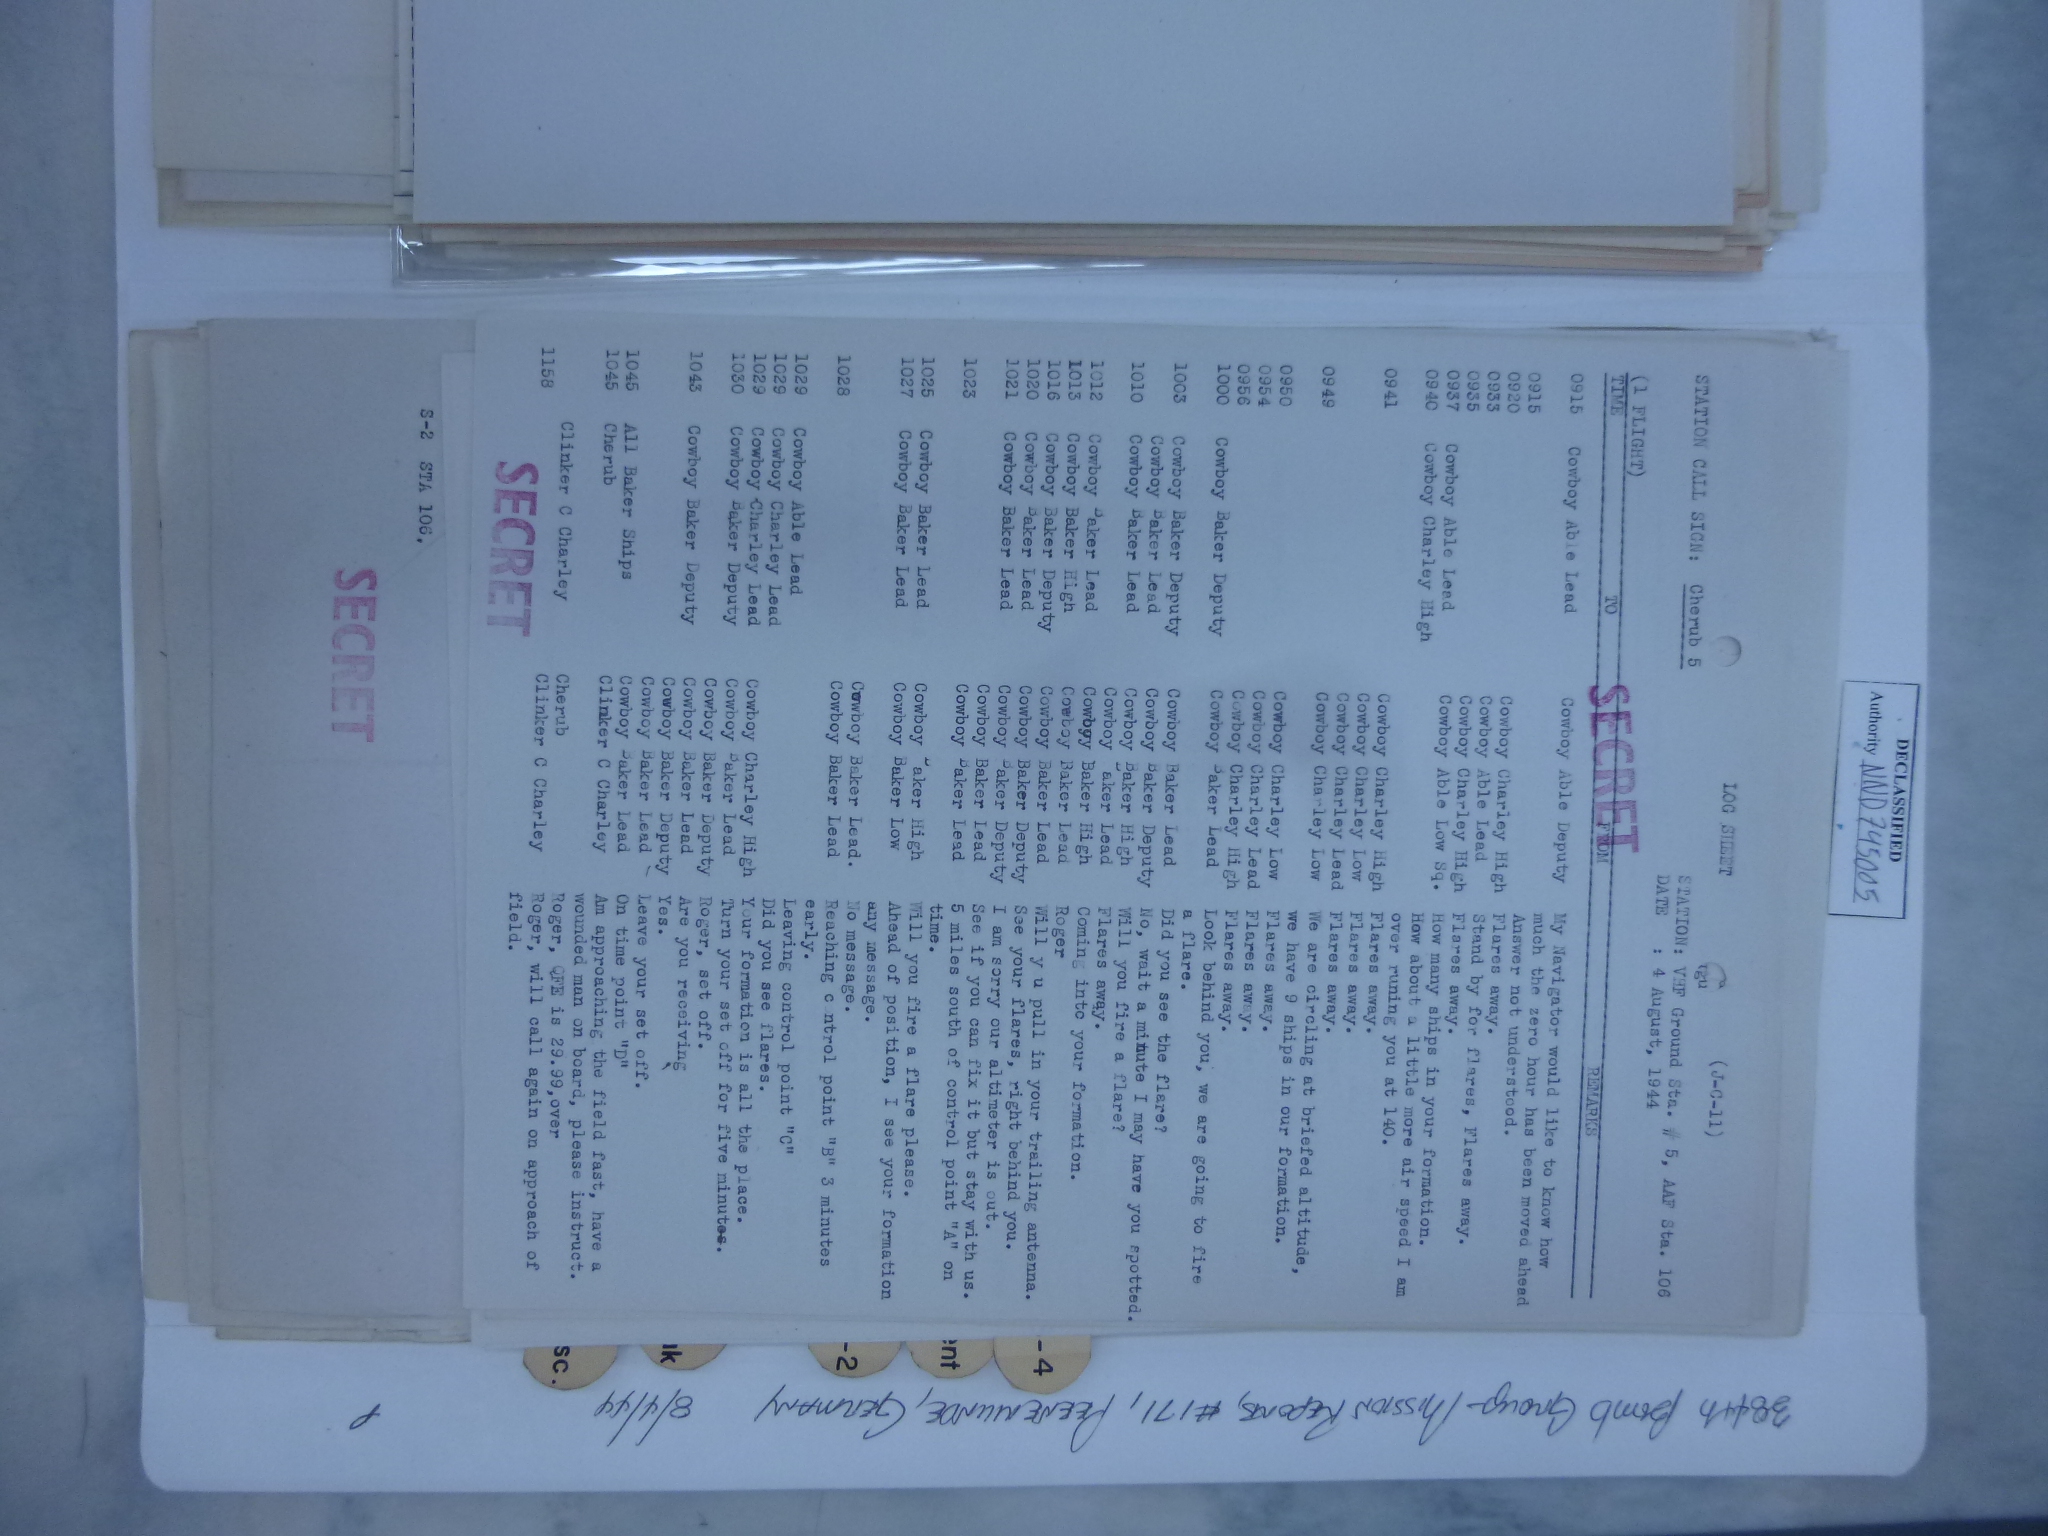 DECLASSIFIED
Authority NND 745005
LOG SHEET (J-C-11)
STATION CALL SIGN: Cherub 5 STATION: VHF Ground Sta. # 5, AAF Sta. 106
DATE : 4 August, 1944
(1 FLIGHT)
SECRET
TIME TO FROM REMARKS
0915 Cowboy Able Lead Cowboy Able Deputy My Navigator would like to know how
much the zero hour has been moved ahead
0915 Answer not understood.
0920 Cowboy Charley High Flares away.
0933 Cowboy Able Lead Stand by for flares, Flares away.
0935 Cowboy Charley High Flares away.
0937 Cowboy Able Lead Cowboy Able Low Sq. How many ships in your formation.
0940 Cowboy Charley High How about a little more air speed I am
over runing you at 140.
0941 Cowboy Charley High Flares away.
Cowboy Charley Low Flares away.
Cowboy Charley Lead Flares away.
0949 Cowboy Charley Low We are circling at briefed altitude,
we have 9 ships in our formation.
0950 Cowboy Charley Low Flares away.
0954 Cowboy Charley Lead Flares away.
0956 Cowboy Charley High Flares away.
1000 Cowboy Baker Deputy Cowboy Baker Lead Look behind you, we are going to fire
a flare.
1003 Cowboy Baker Deputy Cowboy Baker Lead Did you see the flare?
Cowboy Baker Lead Cowboy Baker Deputy No, wait a minute I may have you spotted.
1010 Cowboy Baker Lead Cowboy Baker High Will you fire a flare?
Cowboy Baker Lead Flares away.
1012 Cowboy Baker Lead Cowboy Baker High Coming into your formation.
1013 Cowboy Baker High Cowboy Baker Lead Roger
1016 Cowboy Baker Deputy Cowboy Baker Lead Will y u pull in your trailing antenna.
1020 Cowboy Baker Lead Cowboy Baker Deputy See your flares, right behind you.
1021 Cowboy Baker Lead Cowboy Baker Deputy I am sorry our altimeter is out.
Cowboy Baker Lead See if you can fix it but stay with us.
1023 Cowboy Baker Lead 5 miles south of control point "A" on
time.
1025 Cowboy Baker Lead Cowboy Baker High Will you fire a flare please.
1027 Cowboy Baker Lead Cowboy Baker Low Ahead of position, I see your formation
any message.
Cowboy Baker Lead. No message.
1028 Cowboy Baker Lead Reaching c ntrol point "B" 3 minutes
early.
1029 Cowboy Able Lead Leaving control point "C"
1029 Cowboy Charley Lead Did you see flares.
1029 Cowboy Charley Lead Cowboy Charley High Your formation is all the place.
1030 Cowboy Baker Deputy Cowboy Baker Lead Turn your set off for five minutes.
Cowboy Baker Deputy Roger, set off.
1043 Cowboy Baker Deputy Cowboy Baker Lead Are you receiving
Cowboy Baker Deputy Yes.
Cowboy Baker Lead Leave your set off.
1045 All Baker Ships Cowboy Baker Lead On time point "D"
1045 Cherub Clinker C Charley Am approaching the field fast, have a
wounded man on board, please instruct.
Clinker C Charley Cherub Roger, QFE is 29.99,over
1158 Clinker C Charley Roger, will call again on approach of
field.
SECRET
S-2 STA 106.
SECRET
-4
ent
-2
nk
sc.
384th Bomb Group - Mission Reports, #171, PEENEMUNDE, GERMANY 8/4/44